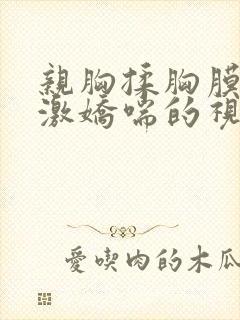 親胸揉胸膜
激嬌喘的視
愛喫肉的木瓜